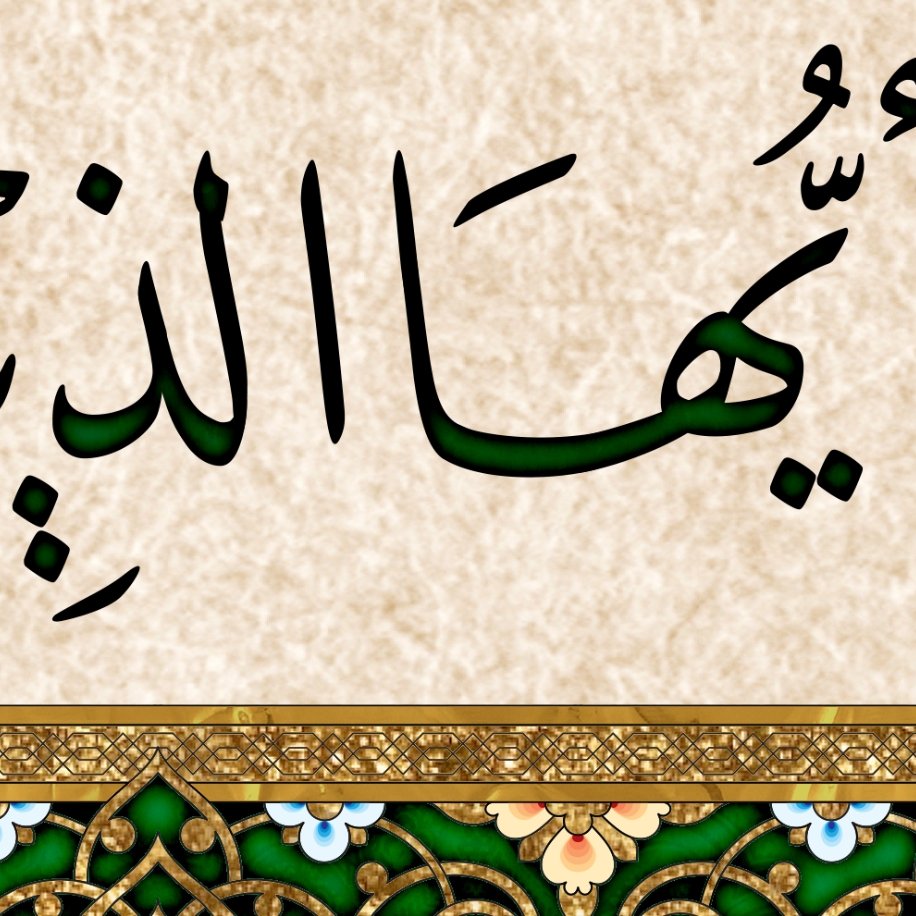 يُّهَا الذِي